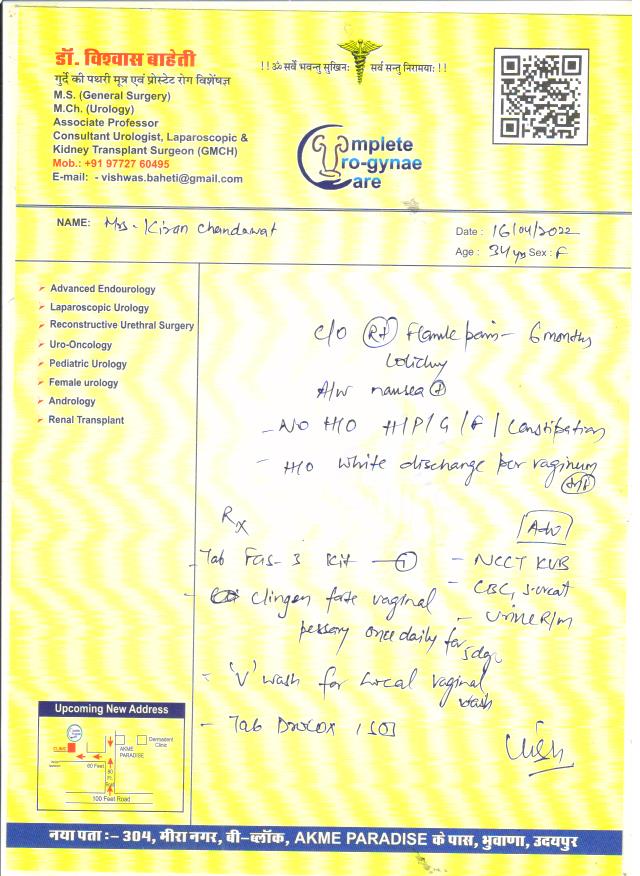 डॉ. विश्वास बाहेती
गुर्दे की पथरी मूत्र एवं प्रोस्टेट रोग विशेषज्ञ
M.S. (General Surgery)
M.Ch. (Urology)
Associate Professor
Consultant Urologist, Laparoscopic &
Kidney Transplant Surgeon (GMCH)
Mob.: +91 97727 60495
E-mail: - vishwas.baheti@gmail.com
!! ॐ सर्वे भवन्तु सुखिनः सर्व सन्तु निरामयाः !!
Complete
Uro-gynae
Care
NAME: Mrs. Kiran Chandawat
Date : 16/04/2022
Age : 34 yrs Sex : F
Advanced Endourology
Laparoscopic Urology
Reconstructive Urethral Surgery
Uro-Oncology
Pediatric Urology
Female urology
Andrology
Renal Transplant
C/O Rt Flank pain - 6 months
A/W nausea +
- No H/O H/P/G/F/Constipation
- H/O white discharge per vaginum
Rx
Adv
- Tab Fas-3 Kit - 1
- Clingen forte vaginal
pessary once daily for
5 days
- 'V' wash for Local vaginal
wash
- Tab Drocox 1 SOS
- NCCT KUB
- CBC, S.creat
- Urine R/m
Upcoming New Address
CLINIC
AKME PARADISE
Dermadent Clinic
60 Feet
80 Ft.
100 Feet Road
नया पता :- 304, मीरा नगर, बी-ब्लॉक, AKME PARADISE के पास, भुवाणा, उदयपुर